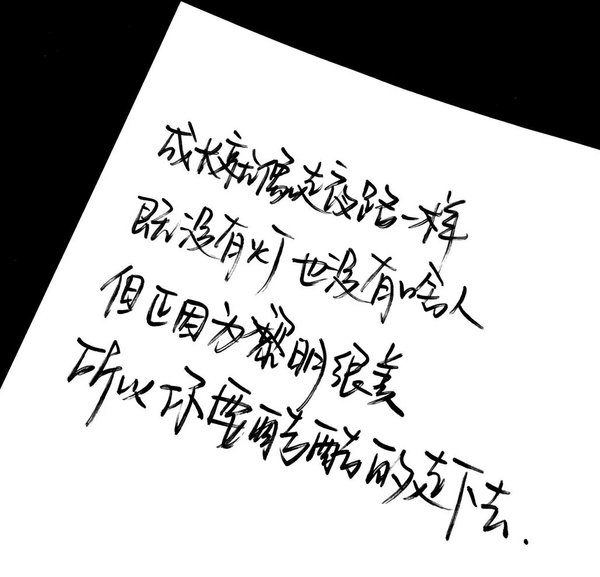 成长就像走夜路一样
既没有灯也没有啥人
但正因为黎明很美
所以还要酷酷的走下去.